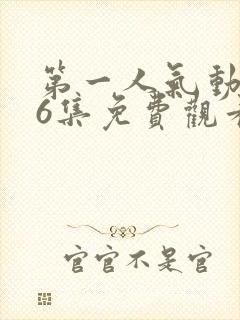 第一人氣動
6集免費觀看
官官不是官